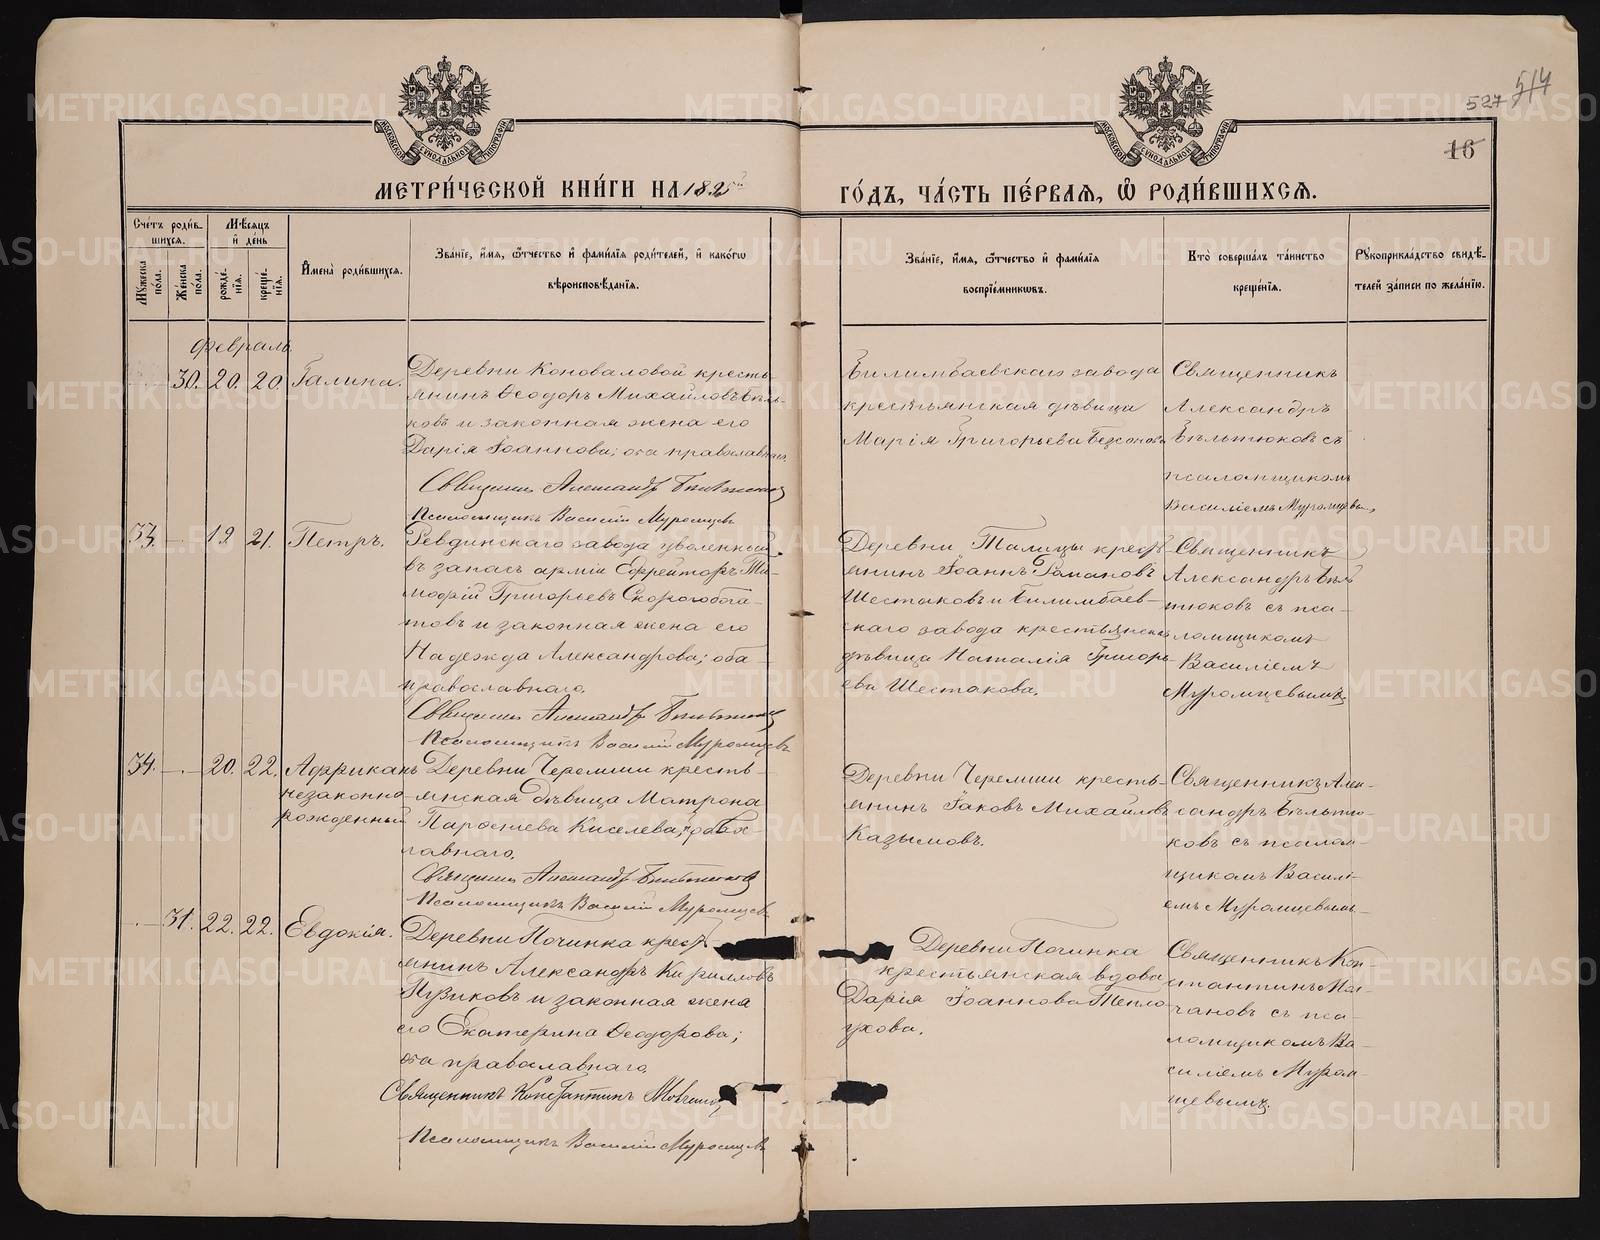 527 514
16
МОСКОВСКОЙ СѴНОДАЛЬНОЙ ТИПОГРАФІИ
МОСКОВСКОЙ СѴНОДАЛЬНОЙ ТИПОГРАФІИ
МЕТРИ́ЧЕСКОЙ КНИ́ГИ НА 1895й
ГО́ДЪ, ЧА́СТЬ ПЕ́РВАЯ, Ѡ РОДИ́ВШИХСЯ.
Сче́тъ роди́в-
шихся.
Мѣ́сяцъ
и де́нь
Му́жеска по́ла.
Же́нска по́ла.
рожде́-
нія.
креще́-
нія.
Имена̀ роди́вшихся.
Зва́ніе, и́мя, ѻ́тчество и фами́лія роди́телей, и како́гѡ
вѣроисповѣ́данія.
Зва́ніе, и́мя, ѻ́тчество и фами́лія
воспріе́мникѡвъ.
Кто̀ соверша́лъ та́инство
креще́нія.
Рꙋкоприкла́дство свидѣ́-
телей за́писи по жела́нію.
Февраль.
30. 20. 20. Галина.
Деревни Коноваловой кресть-
янинъ Ѳеодоръ Михайловъ Бѣль-
ковъ и законная жена его
Дарія Іоаннова; оба православнаго.
Священникъ Александръ Бѣльтюковъ
Псаломщикъ Василій Муромцевъ
Билимбаевскаго завода
крестьянская дѣвица
Марія Григорьева
Священникъ
Александръ
Бѣльтюковъ съ
псаломщикомъ
Василіемъ Муромцевы
33. — 19 21. Петръ.
Ревдинскаго завода уволенный
въ запасъ арміи Ефрейторъ Ти-
мофій Григорьевъ Скорогобога-
товъ и законная жена его
Надежда Александрова; оба
православнаго.
Священникъ Александръ Бѣльтюковъ
Псаломщикъ Василій Муромцевъ
Деревни Талицы крест
янинъ Іоаннъ Романовъ
Шестаковъ и Билимбаев-
скаго завода крестьянска
дѣвица Наталія Григорь-
ева Шестакова.
Священникъ
Александръ Бѣль
тюковъ съ пса-
ломщикомъ
Василіемъ
Муромцевымъ
34. — 20. 22. Африканъ
незаконно
рожденный
Деревни Черемши кресть-
янская дѣвица Матрона
Киселева, правос-
лавнаго.
Священникъ Александръ Бѣльтюковъ
Псаломщикъ Василій Муромцевъ
Деревни Черемши кресть-
янинъ Іаковъ Михайловъ
Казымовъ.
Священникъ Алек-
сандръ Бѣльтю-
ковъ съ псалом-
щикомъ Василі-
емъ Муромцевымъ
— 31. 22. 22. Евдокія.
Деревни Починка крест-
янинъ Александръ Кирилловъ
Пузиковъ и законная жена
его Екатерина Ѳеодорова;
оба православнаго.
Священникъ Константинъ
Псаломщикъ Василій Муромцевъ
Деревни Починка
крестьянская вдова
Дарія Іоаннова Тепло
ухова.
Священникъ Кон-
стантинъ Мол-
чановъ съ пса-
ломщикомъ Ва-
силіемъ Муром-
цевымъ.
METRIKI.GASO-URAL.RU